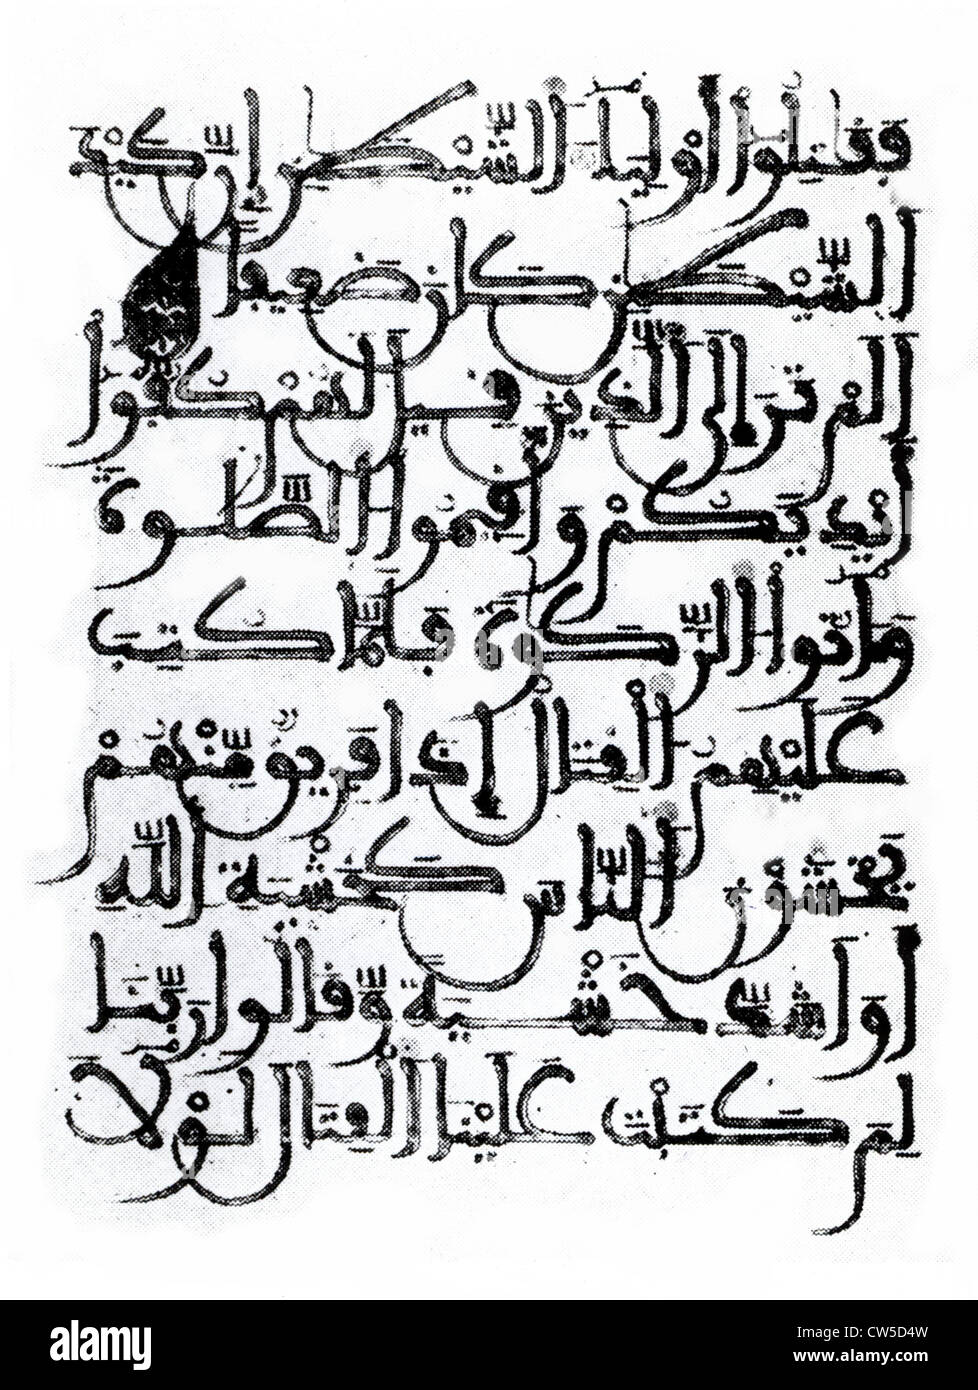 فقتلوا أولياء الشيطن إن كيد
الشيطن كان ضعيفا
ألم تر إلى الذين قيل لهم كفوا
أيديكم وأقيموا الصلوة
وءاتوا الزكوة فلما كتب
عليهم القتال إذا فريق منهم
يخشون الناس كخشية الله
أو أشد خشية وقالوا ربنا
لم كتبت علينا القتال لولا
alamy
Image ID: CW5D4W
www.alamy.com